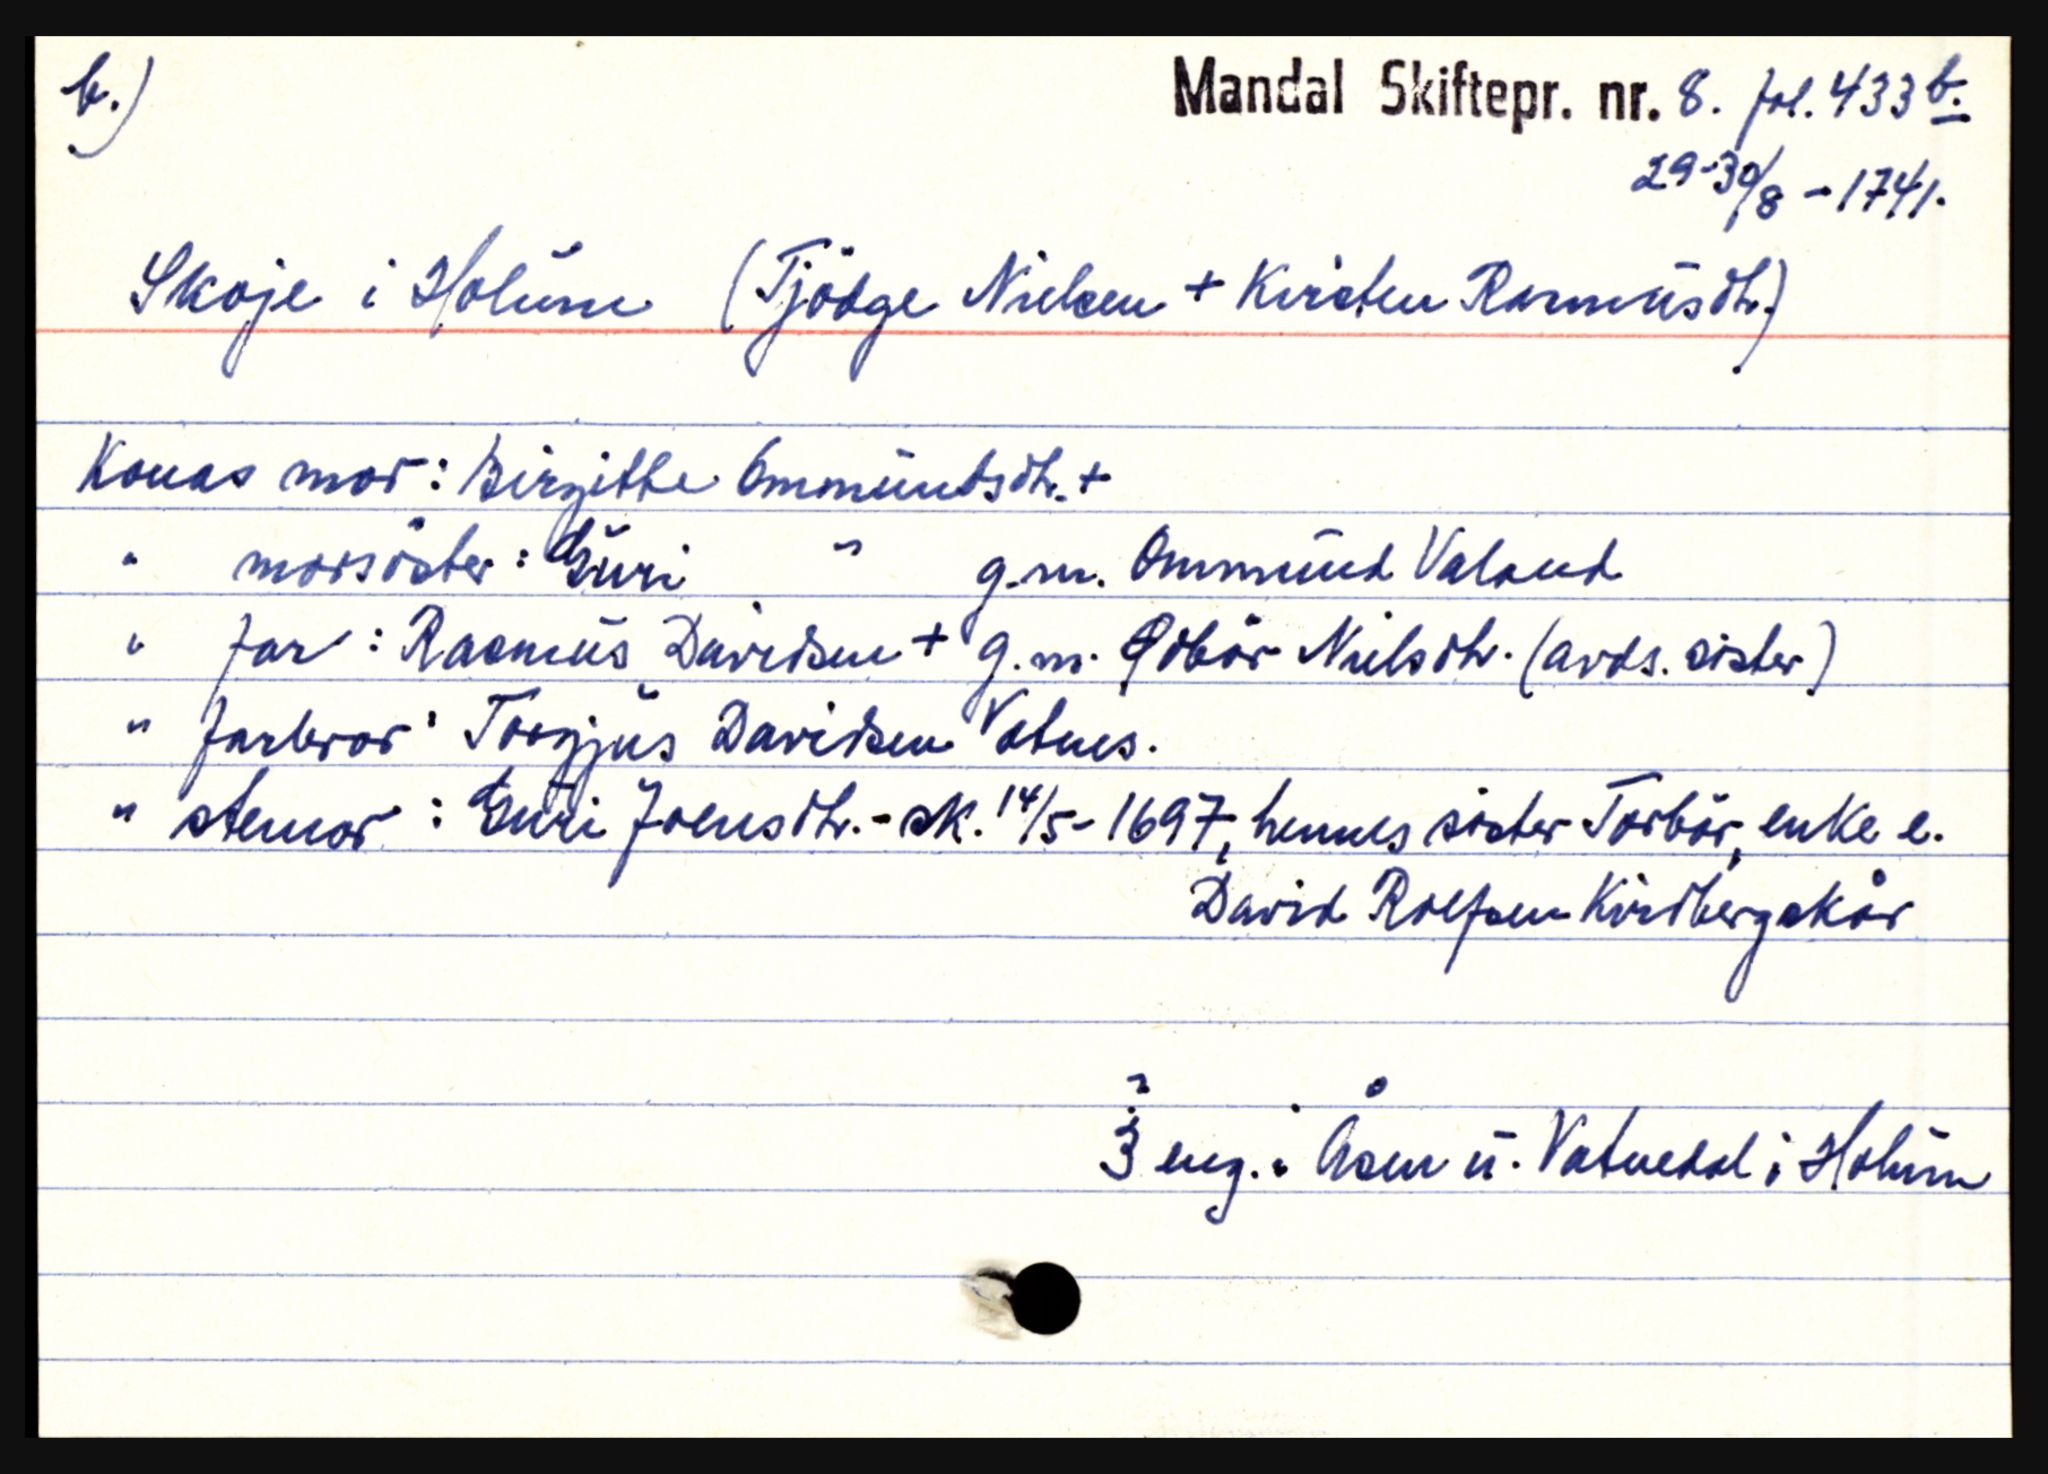 b.)
Mandal Skiftepr. nr. 8. fol. 433 b.
29-30/8 - 1741.
Skoje i Holum (Tjödge Nielsen + Kirsten Rasmusdtr.)
Konas mor: Birgitte Ommundsdtr. +
" morsöster: Guri " g.m. Ommund Valand
" far: Rasmus Davidsen + g.m. Odbör Nielsdtr. (avds. söster)
" farbror: Torgjus Davidsen Vatnes.
" stemor: Guri Joensdtr. - sk. 14/5 - 1697, hennes söster Torbör, enke e.
David Rolfsen Kirsbergskår
3 eng. i Åsen u. Vatnedal i Holum